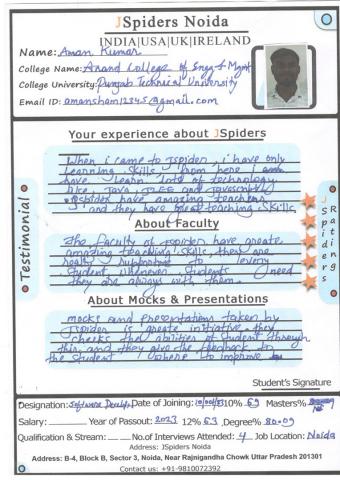 JSpiders Noida
INDIA|USA|UK|IRELAND
Name: Aman Kumar
College Name: Anand College of Engg & Mgmt
College University: Punjab Technical University
Email ID: amansham12345@gmail.com
Your experience about JSpiders
When i came to Jspider, i have only
learning skills, from here I am
have learn lots of technology
like, Java, J2EE and javascript
Jspider have amazing teachers
and they have great teaching skills
About Faculty
The faculty of jspider have greate
amazing teaching skills, there are
really supportive to
student whenever students need
they are always with them.
About Mocks & Presentations
mocks and Presentations taken by
jspider is greate initiative. they
checks the abilities of student through
this. and they give the feedback to
the student where to improve
Testimonial
JSpiders Ratings
Student's Signature
Designation: Software Develp Date of Joining: 10% 69 Masters%
Salary: Year of Passout: 2023 12% 63 ,Degree% 80.09
Qualification & Stream: No.of Interviews Attended: 4 Job Location: Noida
Address: JSpiders Noida
Address: B-4, Block B, Sector 3, Noida, Near Rajnigandha Chowk Uttar Pradesh 201301
Contact us: +91-9810072392